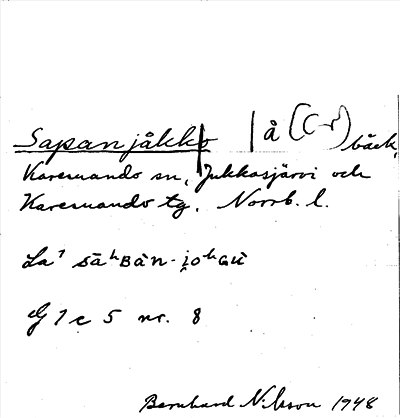 Sapanjåkko | å (C-r) bäck,
Karesuando sn, Jukkasjärvi och
Karesuando tg. Norrb. l.
La¹ sāʰBȧn-i̯oʰGu̇
G 7 c 5 nr. 8
Bernhard Nilsson 1948